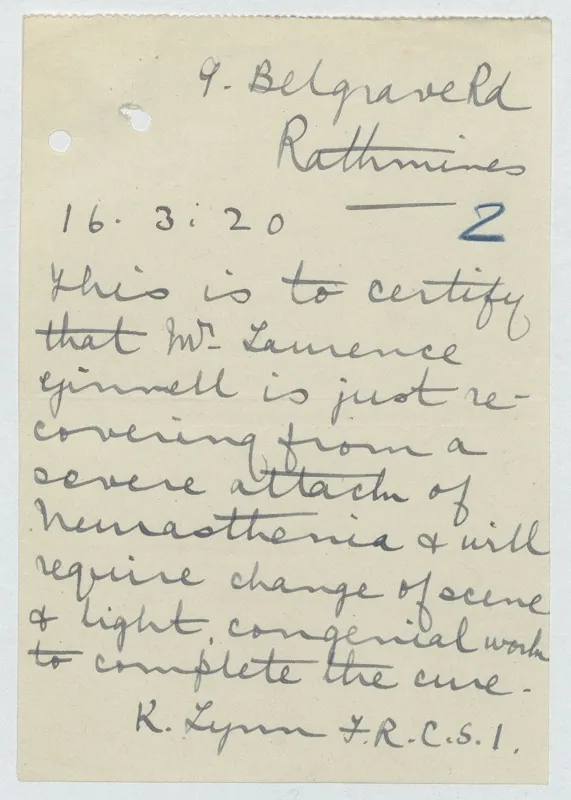 9. Belgrave Rd
Rathmines
16. 3. 20
2
This is to certify
that Mr. Laurence
Ginnell is just re-
covering from a
severe attack of
Neurasthenia & will
require change of scene
& light, congenial work
to complete the cure.
K. Lynn F.R.C.S.I.